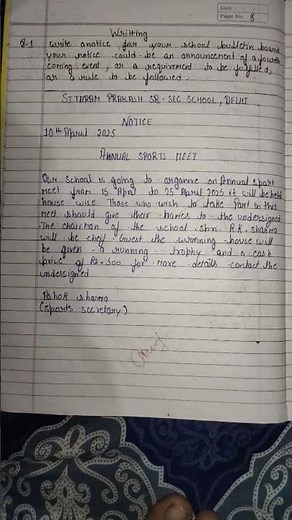 Date :
Page No. 8
Writting
Q-1 write a notice for your school bulletin board
your notice could be an announcement of a forth
coming event, or a requirement to be fulfilled,
or a rule to be followed.
SITARAM PRAKASH SR-SEC SCHOOL, DELHI
NOTICE
10th April 2025
ANNUAL SPORTS MEET
Our School is going to organne on Annual sport
meet from 15 April to 25 April 2025 it will be held
house wise. Those who wish to take part in this
meet should give their names to the undersigned
The chairman of the school shri R.K. sharma
will be chief Guest the winning house will
be given a running trophy and a cash
prize of Rs. 500 for more details contact the
undersigned
Ashok sharma
(sports secretary)